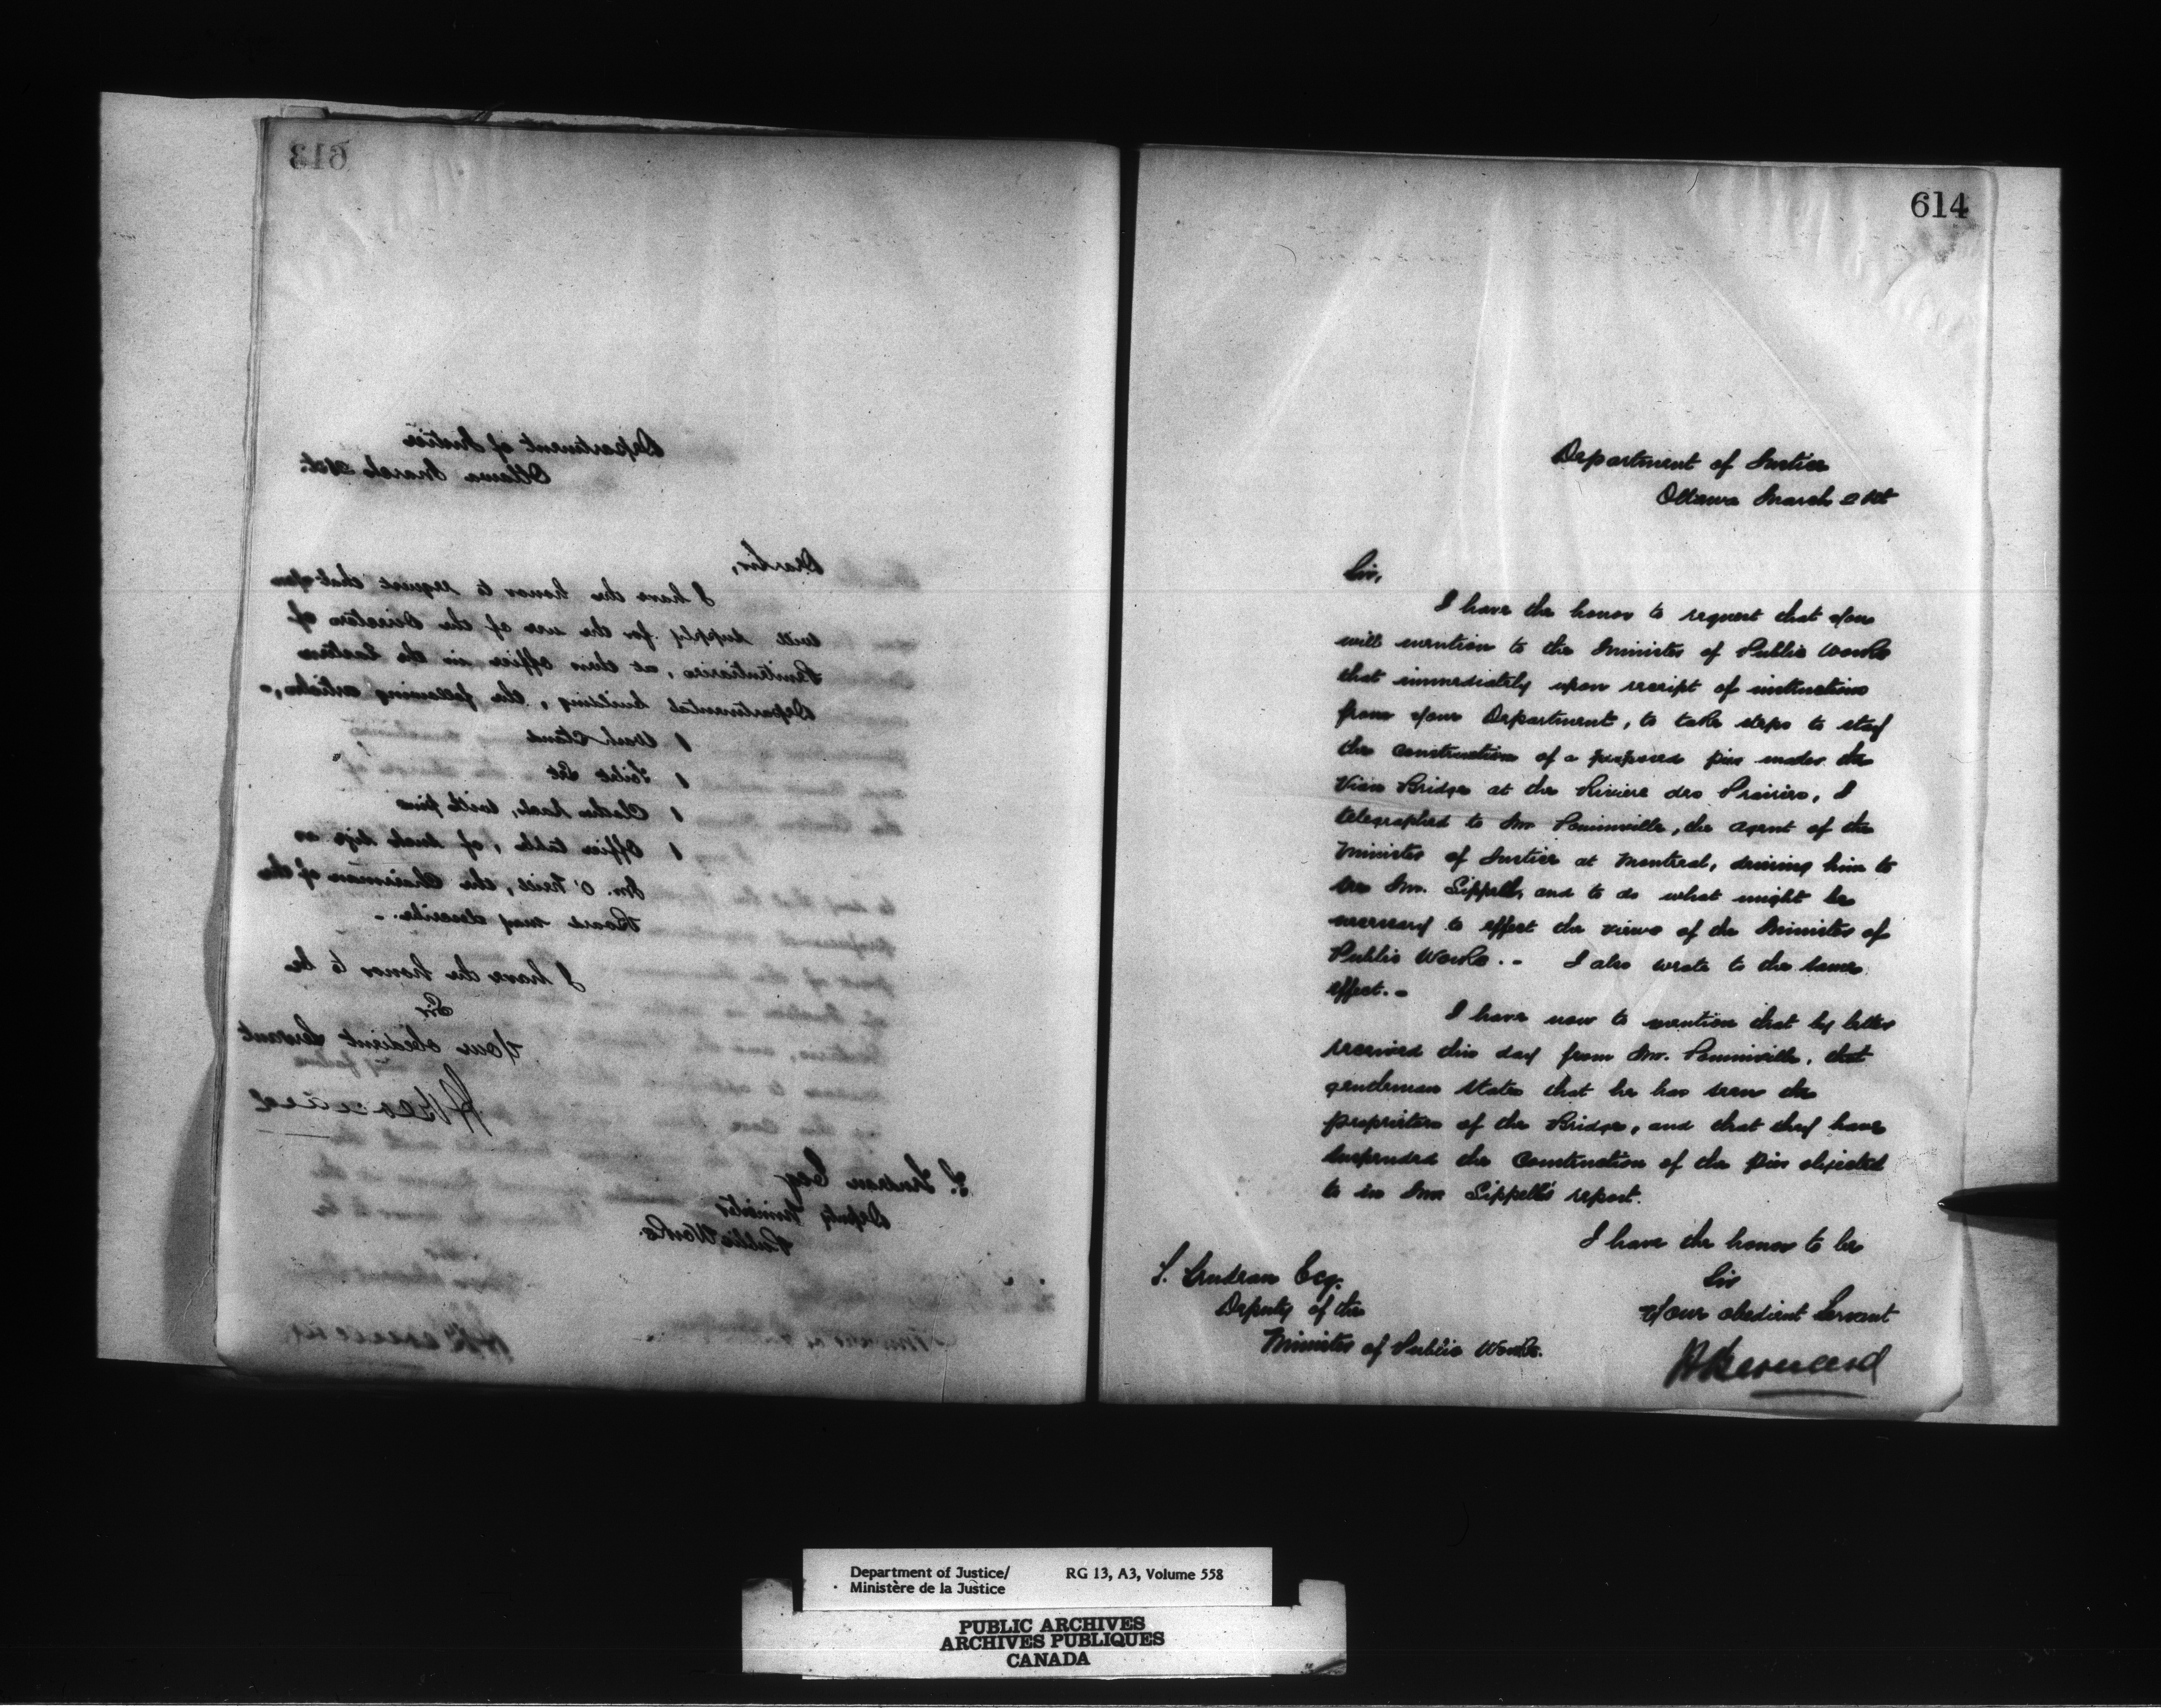 613
Department of Justice
Ottawa March 21st.
Dear Sir,
I have the honor to request that you
will supply for the use of the Directors of
Penitentiaries, at their office in the Eastern
Departmental building, the following articles,-
1 Wash Stand
1 Toilet Set
1 Clothes Rack, with pins
1 Office table, of such size as
Mr. O'Neill, the Chairman of the
Board may describe.-
I have the honor to be
Sir
Your obedient Servant
HBernard
T. Trudeau Esq
Deputy Minister
Public Works.
614
Department of Justice
Ottawa March 21st
Sir,
I have the honor to request that you
will mention to the Minister of Public Works
that immediately upon receipt of instructions
from your Department, to take steps to stay
the construction of a proposed pier under the
Viau Bridge at the Riviere des Prairies, I
telegraphed to Mr. Pominville, the agent of the
Minister of Justice at Montreal, desiring him to
see Mr. Sippell, and to do what might be
necessary to effect the views of the Minister of
Public Works.- I also wrote to the same
effect.-
I have now to mention that by letter
received this day from Mr. Pominville, that
gentleman states that he has seen the
proprietors of the Bridge, and that they have
suspended the construction of the pier objected
to in Mr Sippell's report.
I have the honor to be
Sir
Your obedient Servant
HBernard
T. Trudeau Esq.
Deputy of the
Minister of Public Works.
Department of Justice/ RG 13, A3, Volume 558
Ministère de la Justice
PUBLIC ARCHIVES
ARCHIVES PUBLIQUES
CANADA